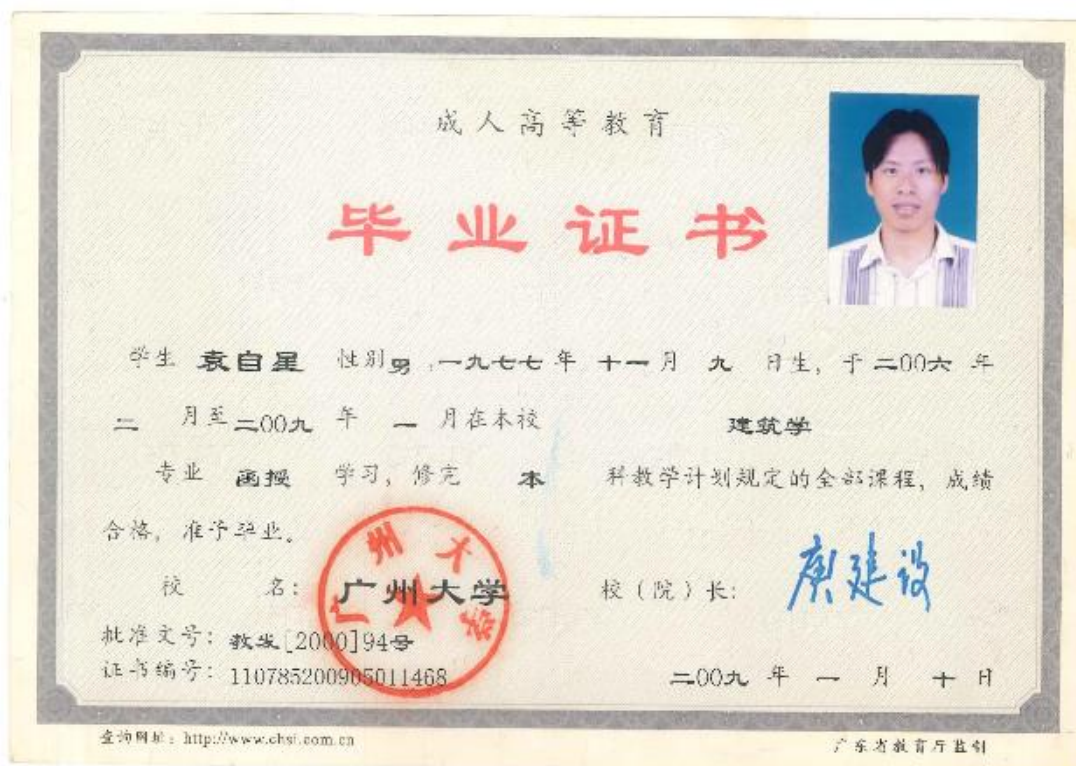 成人高等教育
毕业证书
学生 袁自星 性别男,一九七七年 十一月 九 日生, 于二00六 年
二 月至二00九 年 一 月在本校 建筑学
专业 函授 学习, 修完 本 科教学计划规定的全部课程, 成绩
合格, 准予毕业。
校 名: 广州大学 校(院)长: 庾建设
广州大学
批准文号: 教发[2000]94号
证书编号: 110785200905011468 二00九 年 一 月 十 日
查询网址: http://www.chsi.com.cn 广东省教育厅监制